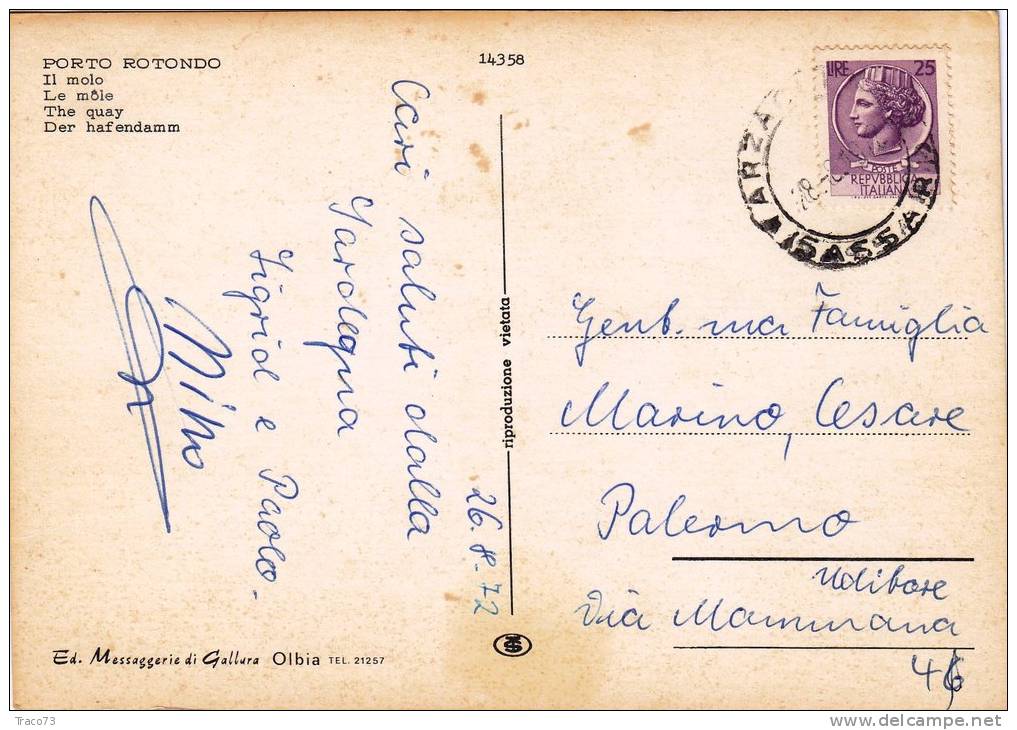 PORTO ROTONDO
Il molo
Le môle
The quay
Der hafendamm
14358
LIRE 25
POSTE
REPVBBLICA
ITALIANA
ARZAC
(SASSARI)
26.8-72
Cari saluti dalla
Sardegna
Sigrid e Paolo.
Nino
riproduzione vietata
Gent.ma Famiglia
Marino, Cesare
Palermo
Uditore
Via Mammana
46
Ed. Messaggerie di Gallura Olbia TEL. 21257
Traco73
delcampe.net